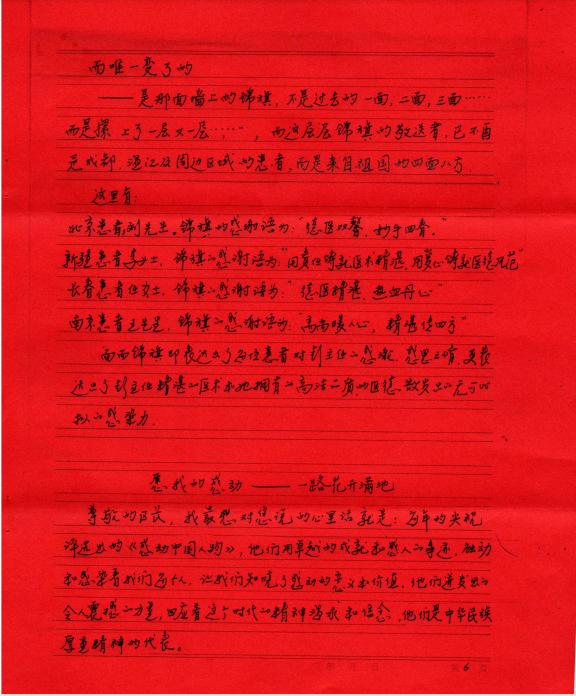 而唯一变了的
——是那面墙上的锦旗，不是过去的一面，二面，三面……
而是摞上了一层又一层……"，而这层层锦旗的敬送者，已不再
是成都，温江及周边区域的患者，而是来自祖国的四面八方
这里有：
北京患者刘先生。锦旗的感谢语为："德医双馨，妙手回春。"
新疆患者李女士，锦旗的感谢语为："用责任铸就医术精湛，用爱心铸就医德风范"
长春患者任女士，锦旗的感谢语为："德医精湛，热血丹心"
南京患者王先生，锦旗的感谢语为："高尚暖人心，精湛传四方"
面面锦旗即表达出了每位患者对彭主任的感激，感恩之情，更表
达出了彭主任精湛的医术和他拥有的高洁品质的医德，散发出的无可比
拟的感染力。
我的感动——一路花开满地
尊敬的区长，我最想对您说的心里话就是：每年的央视
评选出的《感动中国人物》，他们用卓越的成就和感人的事迹，触动
和感染着我们每个人，让我们知晓了感动的意义和价值，他们迸发出的
令人震撼的力量，回应着这个时代的精神渴求和信念，他们是中华民族
厚重精神的代表。
第6页